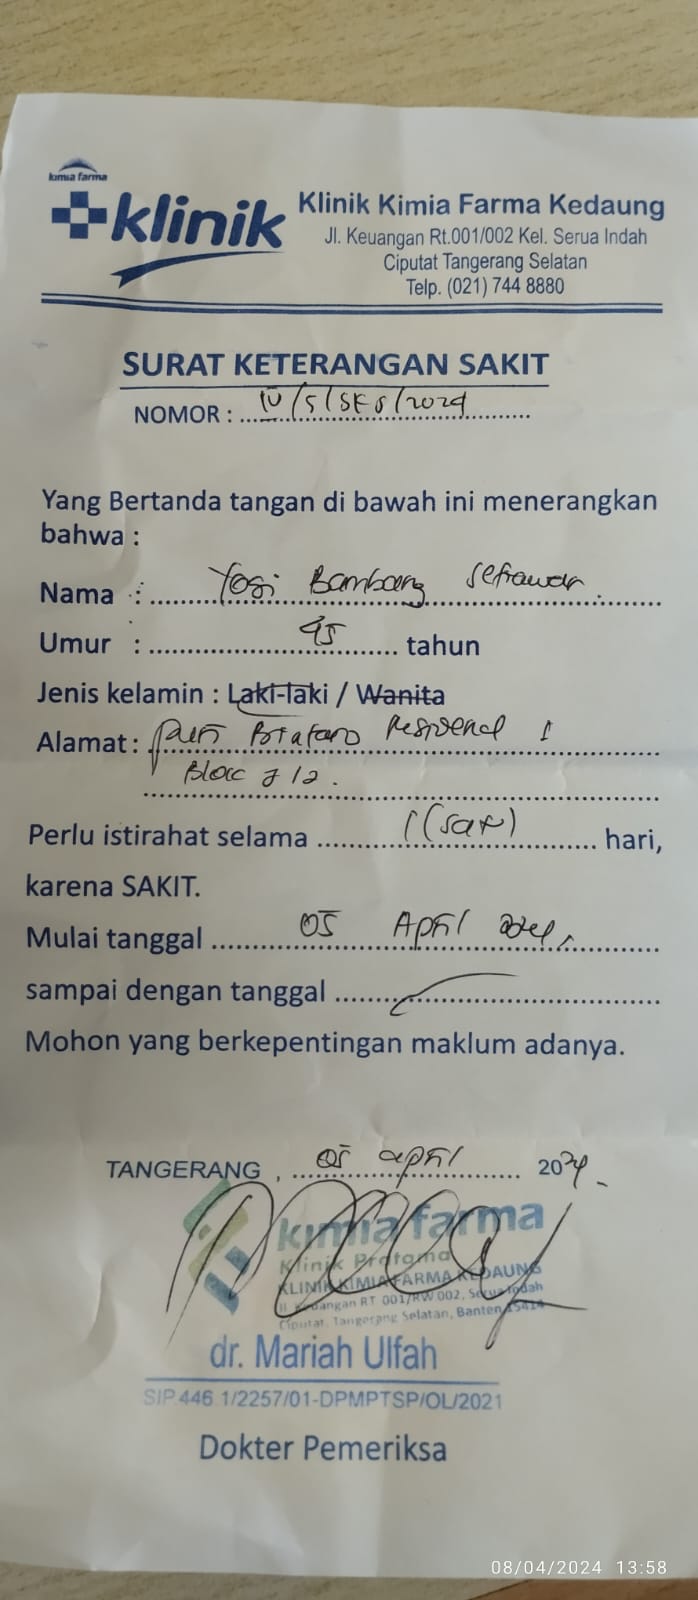 kimia farma
klinik
Klinik Kimia Farma Kedaung
Jl. Keuangan Rt.001/002 Kel. Serua Indah
Ciputat Tangerang Selatan
Telp. (021) 744 8880
SURAT KETERANGAN SAKIT
NOMOR : IV/5/SKS/2024
Yang Bertanda tangan di bawah ini menerangkan
bahwa :
Nama : Yogi Bambang Setiawan
Umur : 45 tahun
Jenis kelamin : Laki-laki / Wanita
Alamat : Puri
Block
Perlu istirahat selama 1 (satu) hari,
karena SAKIT.
Mulai tanggal 05 April 2024
sampai dengan tanggal
Mohon yang berkepentingan maklum adanya.
TANGERANG , 05 april 2024
kimia farma
Klinik Pratama
KLINIK KIMIA FARMA KEDAUNG
Jl. Keuangan RT 001/RW 002, Serua Indah
Ciputat, Tangerang Selatan, Banten 15414
dr. Mariah Ulfah
SIP.446.1/2257/01-DPMPTSP/OL/2021
Dokter Pemeriksa
08/04/2024 13:58